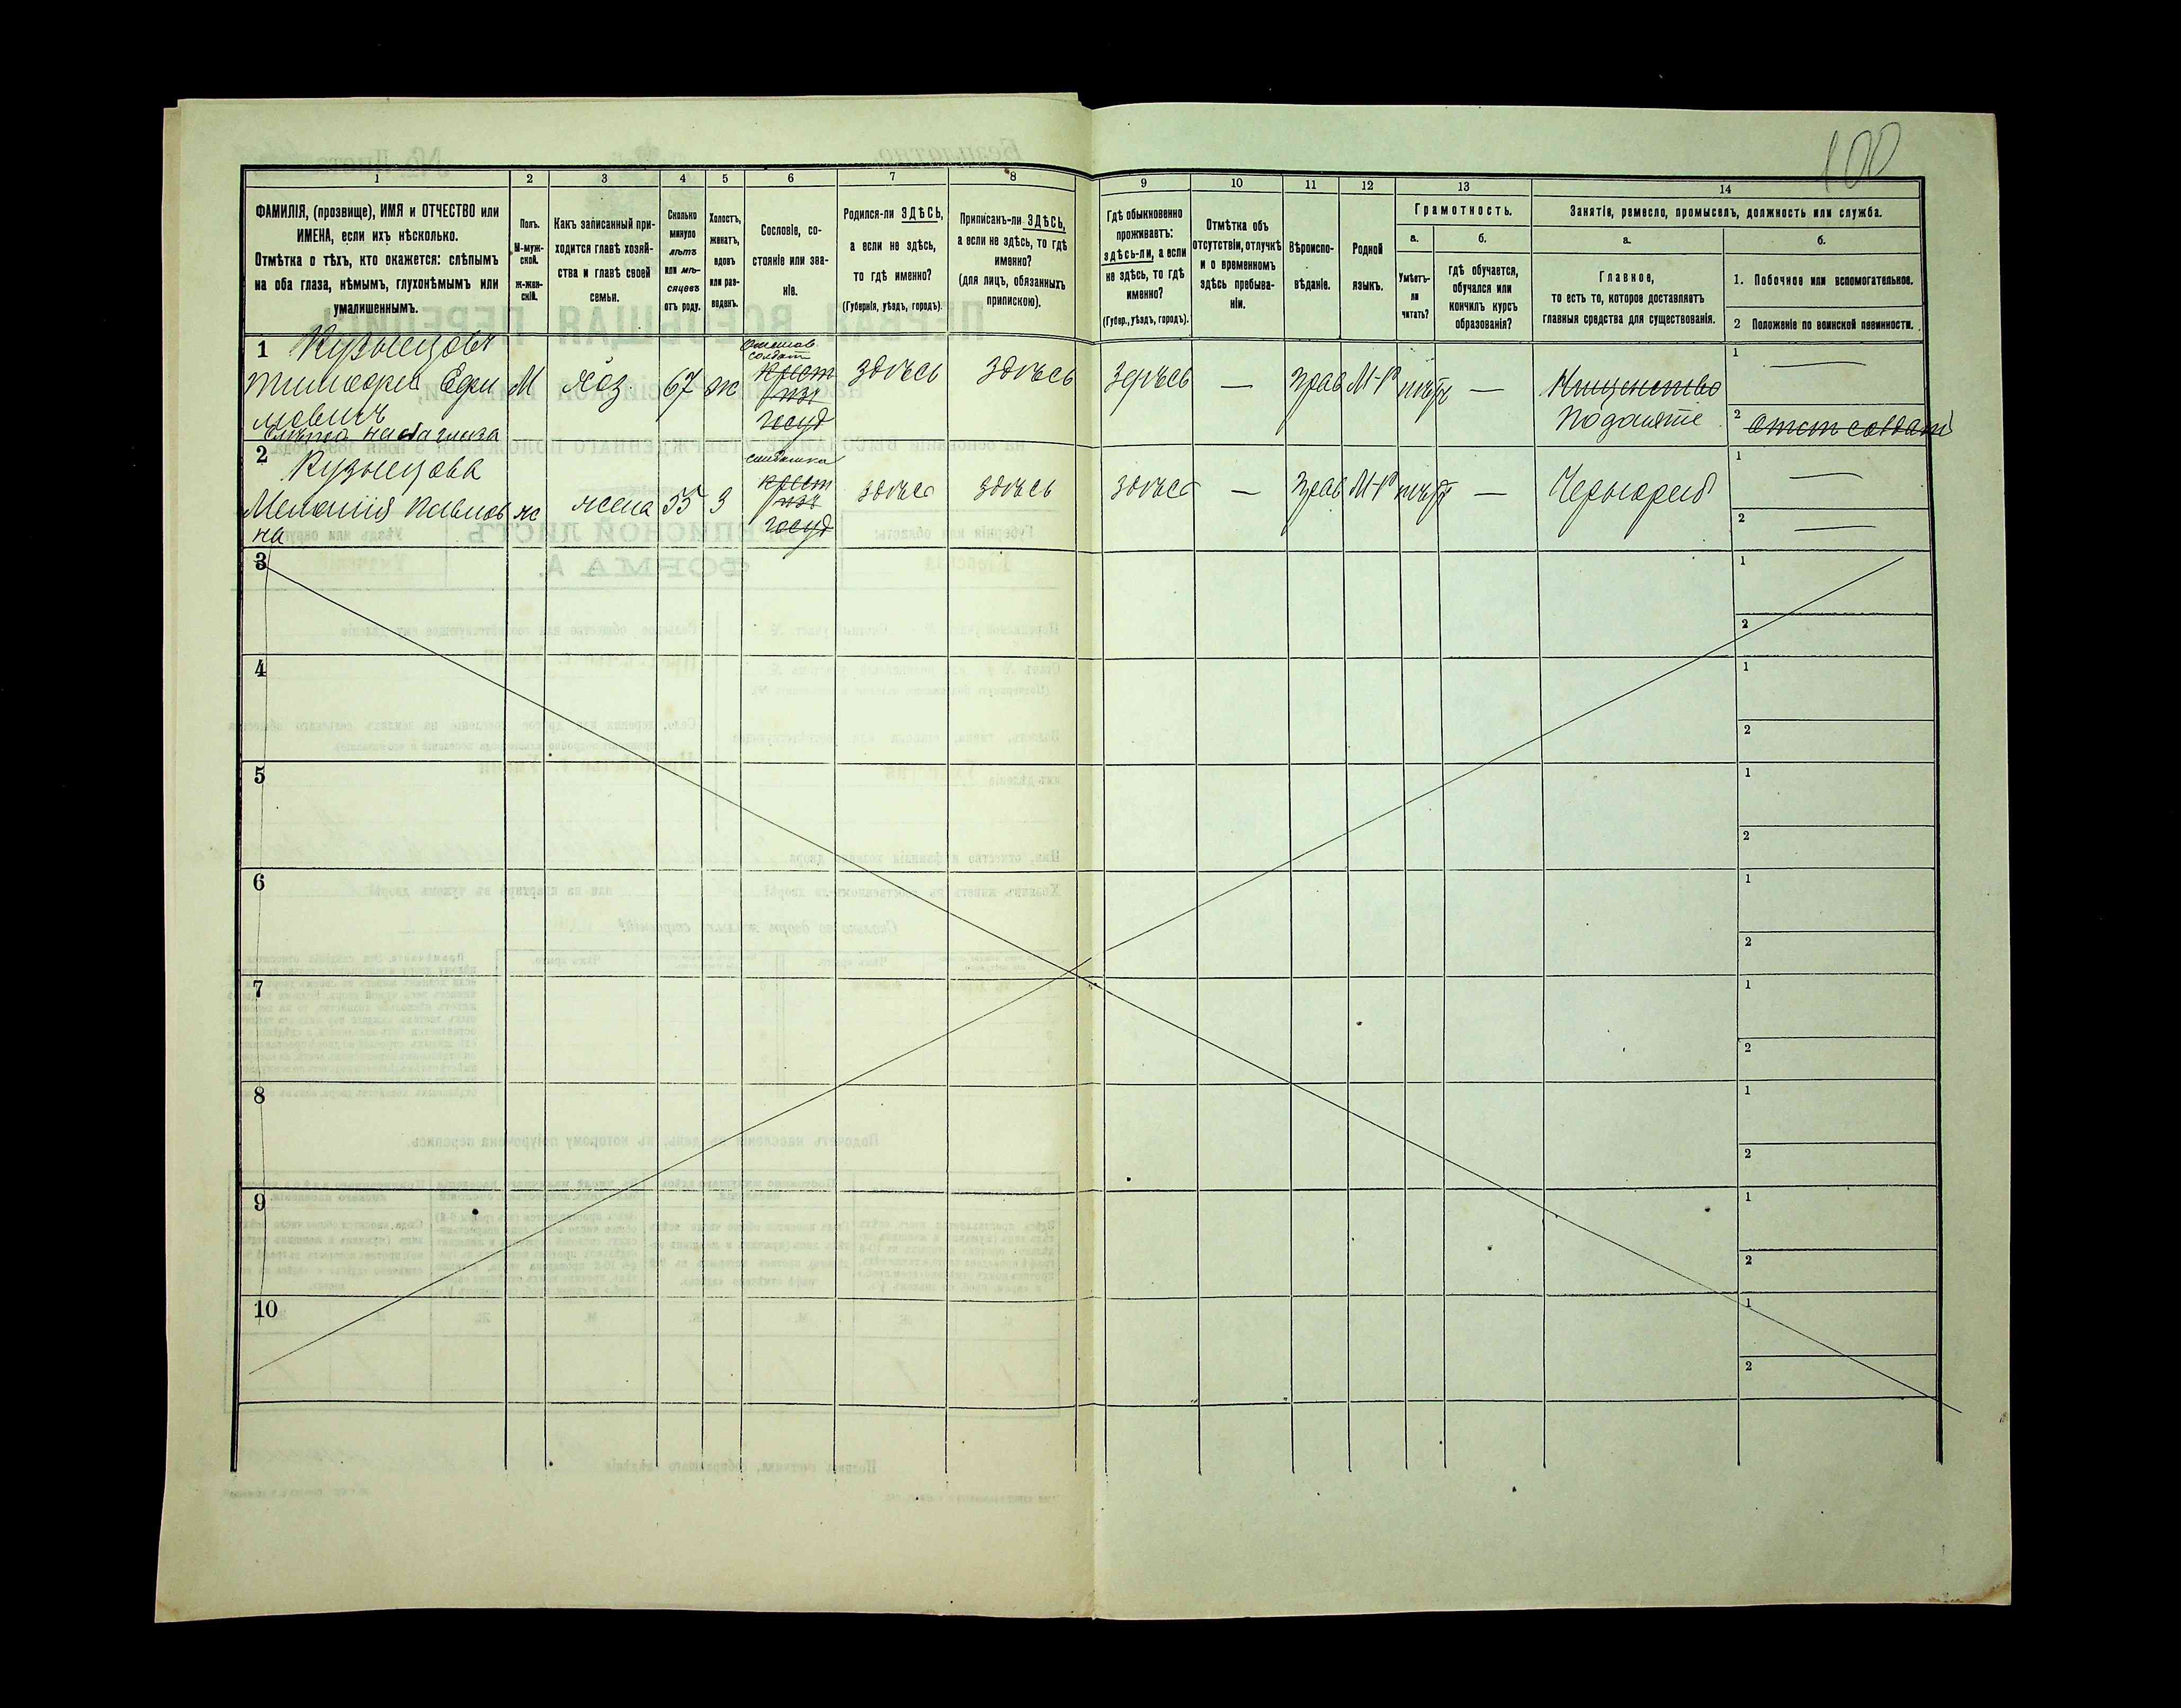 100
1
2
3
4
5
6
7
8
9
10
11
12
13
14
ФАМИЛІЯ, (прозвище), ИМЯ и ОТЧЕСТВО или
ИМЕНА, если ихъ нѣсколько.
Отмѣтка о тѣхъ, кто окажется: слѣпымъ
на оба глаза, нѣмымъ, глухонѣмымъ или
умалишеннымъ.
Полъ.
М-муж-
ской.
ж-жен-
скій.
Какъ записанный при-
ходится главѣ хозяй-
ства и главѣ своей
семьи.
Сколько
минуло
лѣтъ
или мѣ-
сяцевъ
отъ роду.
Холостъ,
женатъ,
вдовъ
или раз-
веденъ.
Сословіе, со-
стояніе или зва-
ніе.
Родился-ли ЗДѢСЬ,
а если не здѣсь,
то гдѣ именно?
(Губернія, уѣздъ, городъ).
Приписанъ-ли ЗДѢСЬ,
а если не здѣсь, то гдѣ
именно?
(для лицъ, обязанныхъ
припискою).
Гдѣ обыкновенно
проживаетъ:
здѣсь-ли, а если
не здѣсь, то гдѣ
именно?
(Губер., уѣздъ, городъ).
Отмѣтка объ
отсутствіи, отлучкѣ
и о временномъ
здѣсь пребыва-
ніи.
Вѣроиспо-
вѣданіе.
Родной
языкъ.
Грамотность.
а.
Умѣетъ-
ли
читать?
б.
гдѣ обучается,
обучался или
кончилъ курсъ
образованія?
Занятіе, ремесло, промыселъ, должность или служба.
а.
Главное,
то есть то, которое доставляетъ
главныя средства для существованія.
б.
1. Побочное или вспомогательное.
2 Положеніе по воинской повинности.
1 Кузнецовъ
Тимофей Ефи
мовичъ
М
хоз.
67
ж
солдат
крест
изъ
госуд
здѣсь
здѣсь
здѣсь
—
прав
М-Р
нѣтъ
—
Нищенство
Подаяніе
1 —
2 отст солдат
2 Кузнецова
Меланія Павлов
на
ж
жена
55
З
солдатка
крест
изъ
госуд
здѣсь
здѣсь
здѣсь
—
прав
М-Р
нѣтъ
—
1 —
2 —
3
1
2
4
1
2
5
1
2
6
1
2
7
1
2
8
1
2
9
1
2
10
1
2